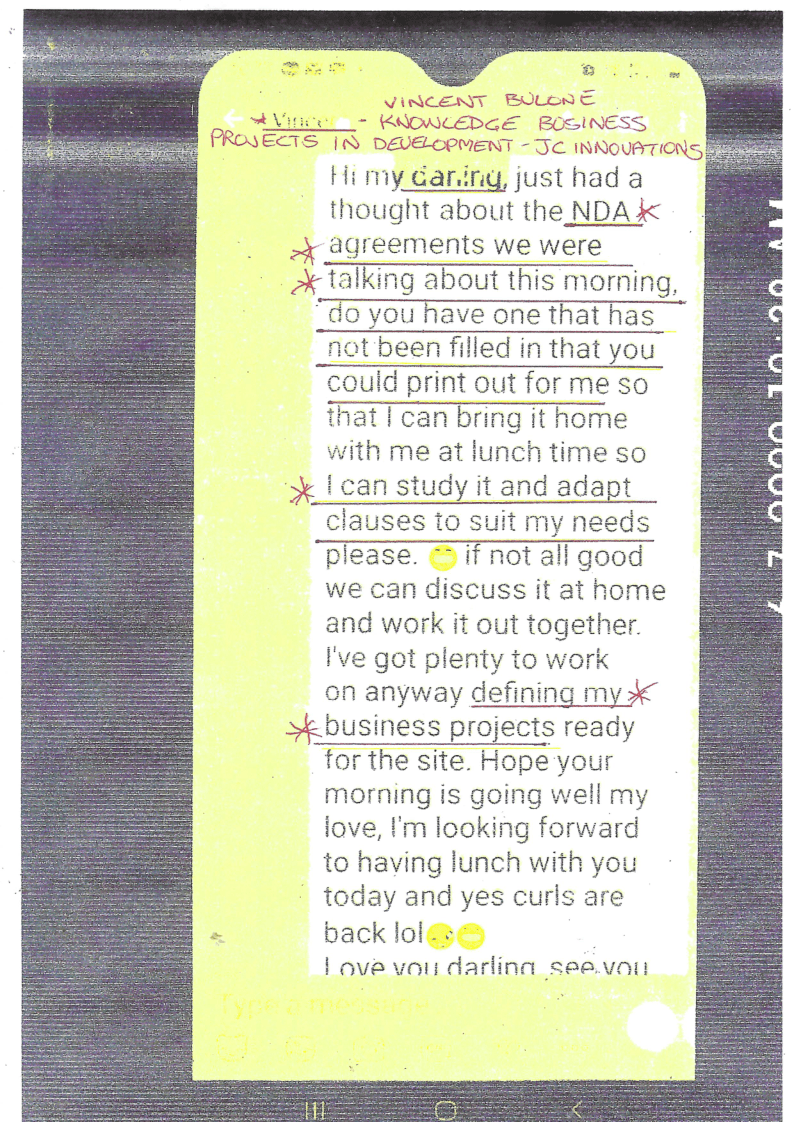 VINCENT BULONE
* Vince - KNOWLEDGE BUSINESS
PROJECTS IN DEVELOPMENT - JC INNOVATIONS
Hi my darling, just had a
thought about the NDA *
* agreements we were
* talking about this morning,
do you have one that has
not been filled in that you
could print out for me so
that I can bring it home
with me at lunch time so
* I can study it and adapt
clauses to suit my needs
please. 😁 if not all good
we can discuss it at home
and work it out together.
I've got plenty to work
on anyway defining my *
* business projects ready
for the site. Hope your
morning is going well my
love, I'm looking forward
to having lunch with you
today and yes curls are
back lol
Love you darling, see you
Type a message